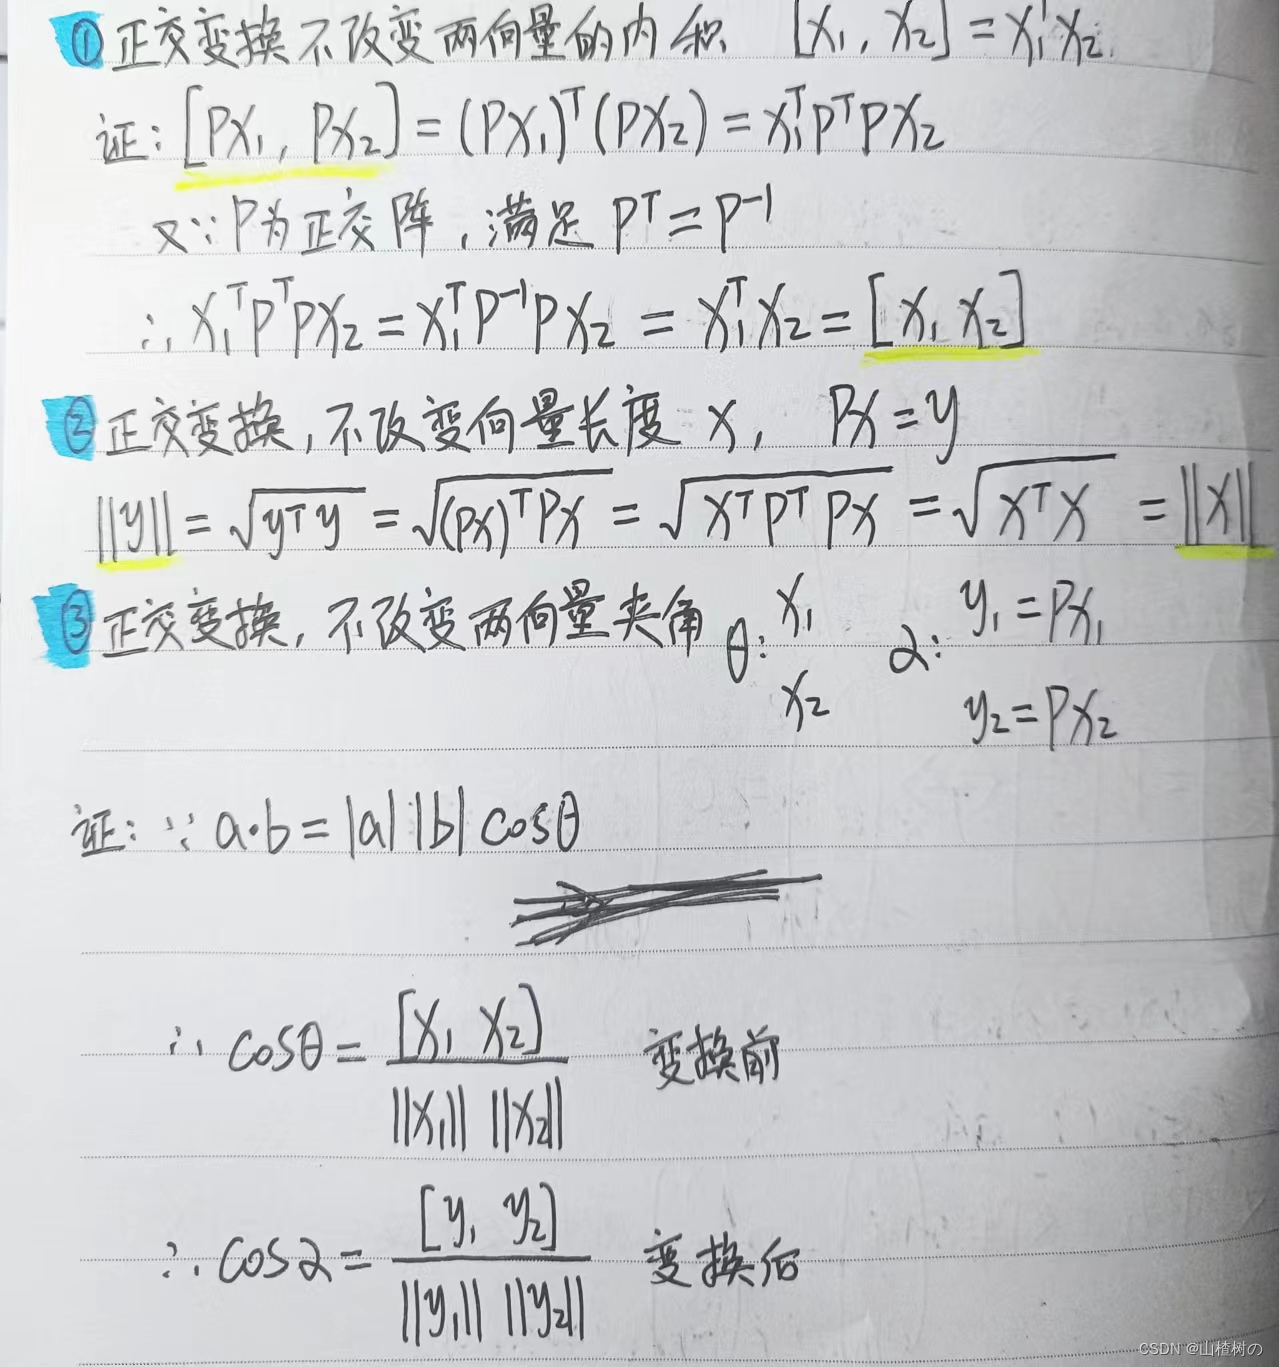 ① 正交变换不改变两向量的内积 [X₁, X₂] = X₁ᵀX₂.
证: [PX₁, PX₂] = (PX₁)ᵀ(PX₂) = X₁ᵀPᵀPX₂
又∵ P为正交阵, 满足 Pᵀ = P⁻¹
∴ X₁ᵀPᵀPX₂ = X₁ᵀP⁻¹PX₂ = X₁ᵀX₂ = [X₁ X₂]
② 正交变换, 不改变向量长度 X, PX = y
||y|| = √(yᵀy) = √((PX)ᵀPX) = √(XᵀPᵀPX) = √(XᵀX) = ||X||
③ 正交变换, 不改变两向量夹角 θ: X₁ X₂ α: y₁ = PX₁ y₂ = PX₂
证: ∵ a·b = |a| |b| cosθ
∴ cosθ = [X₁ X₂] / ||X₁|| ||X₂|| 变换前
∴ cosα = [y₁ y₂] / ||y₁|| ||y₂|| 变换后
CSDN @山楂树の